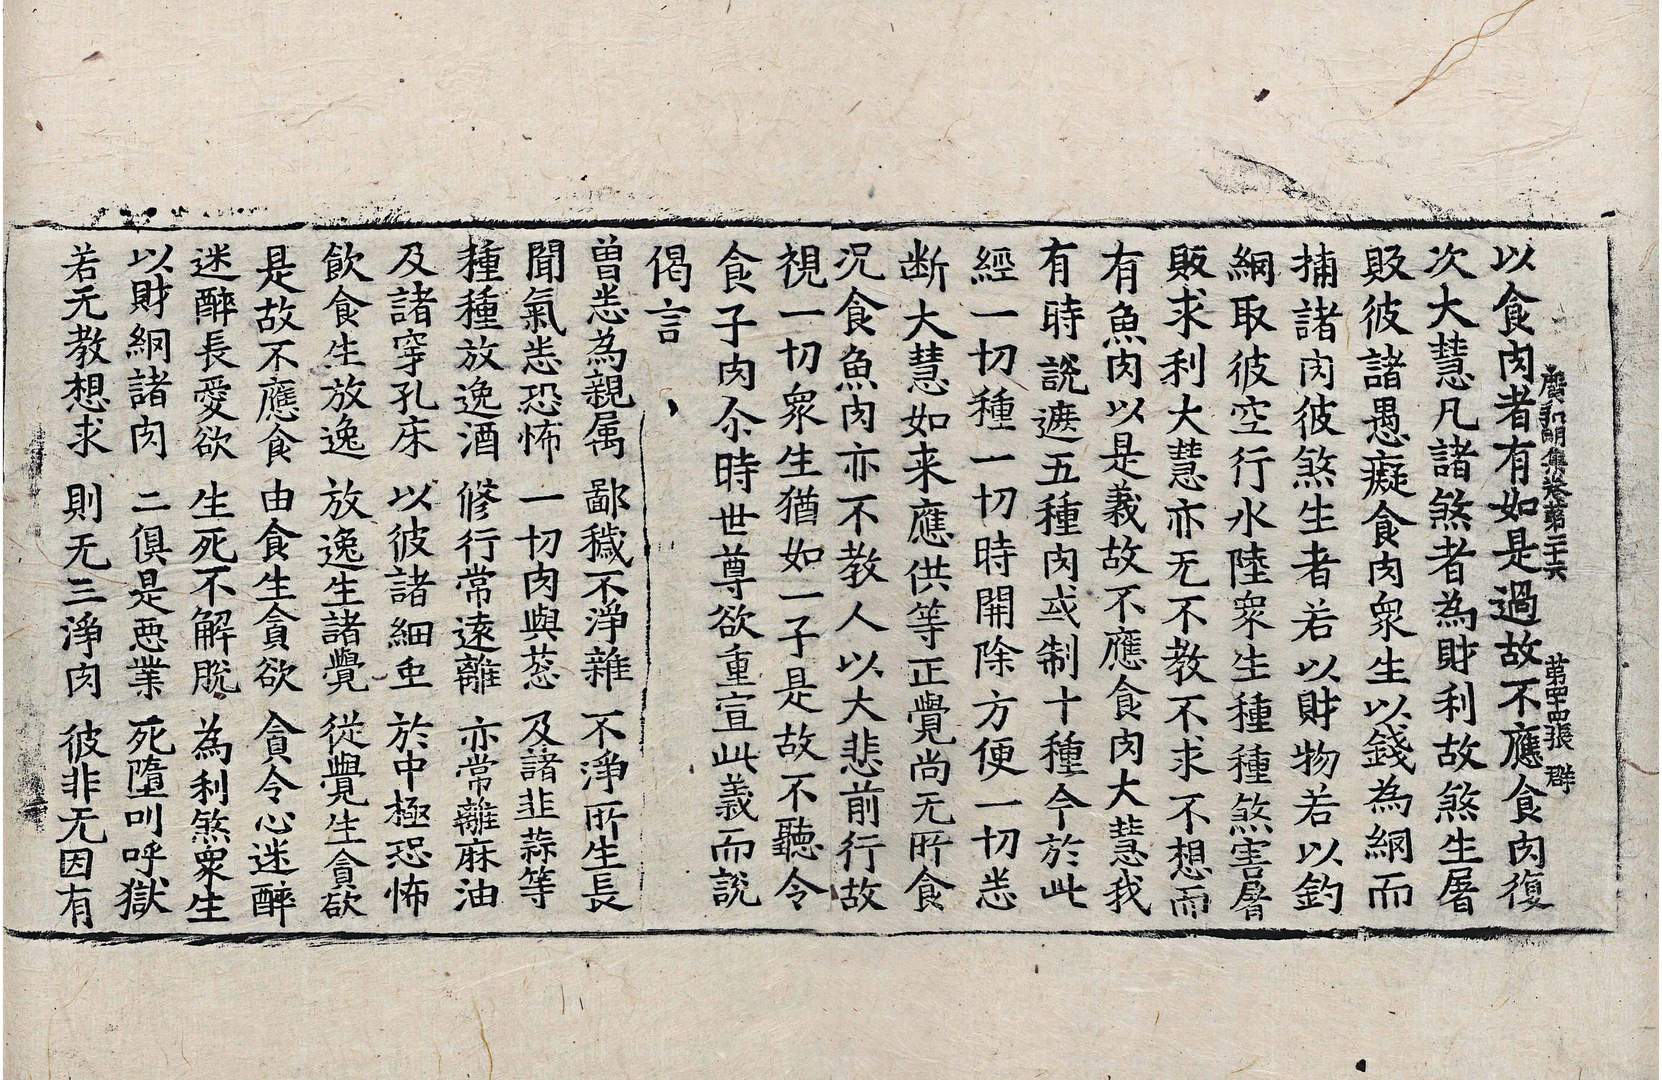 廣弘明集卷第二十六　第四十四張　群
以食肉者有如是過故不應食肉復
次大慧凡諸煞者為財利故煞生屠
販彼諸愚癡食肉衆生以錢為網而
捕諸肉彼煞生者若以財物若以鈎
網取彼空行水陸衆生種種煞害屠
販求利大慧亦无不教不求不想而
有魚肉以是義故不應食肉大慧我
有時說遮五種肉或制十種今於此
經一切種一切時開除方便一切悉
断大慧如来應供等正覺尚无所食
況食魚肉亦不教人以大悲前行故
視一切衆生猶如一子是故不聽令
食子肉尒時世尊欲重宣此義而說
偈言
曽悉為親属　鄙穢不淨雜　不淨所生長
聞氣悉恐怖　一切肉與葱　及諸韭蒜等
種種放逸酒　修行常遠離　亦常離麻油
及諸穿孔床　以彼諸細虫　於中極恐怖
飲食生放逸　放逸生諸覺　從覺生貪欲
是故不應食　由食生貪欲　貪令心迷醉
迷醉長愛欲　生死不解脫　為利煞衆生
以財網諸肉　二俱是惡業　死墮叫呼獄
若无教想求　則无三淨肉　彼非无因有